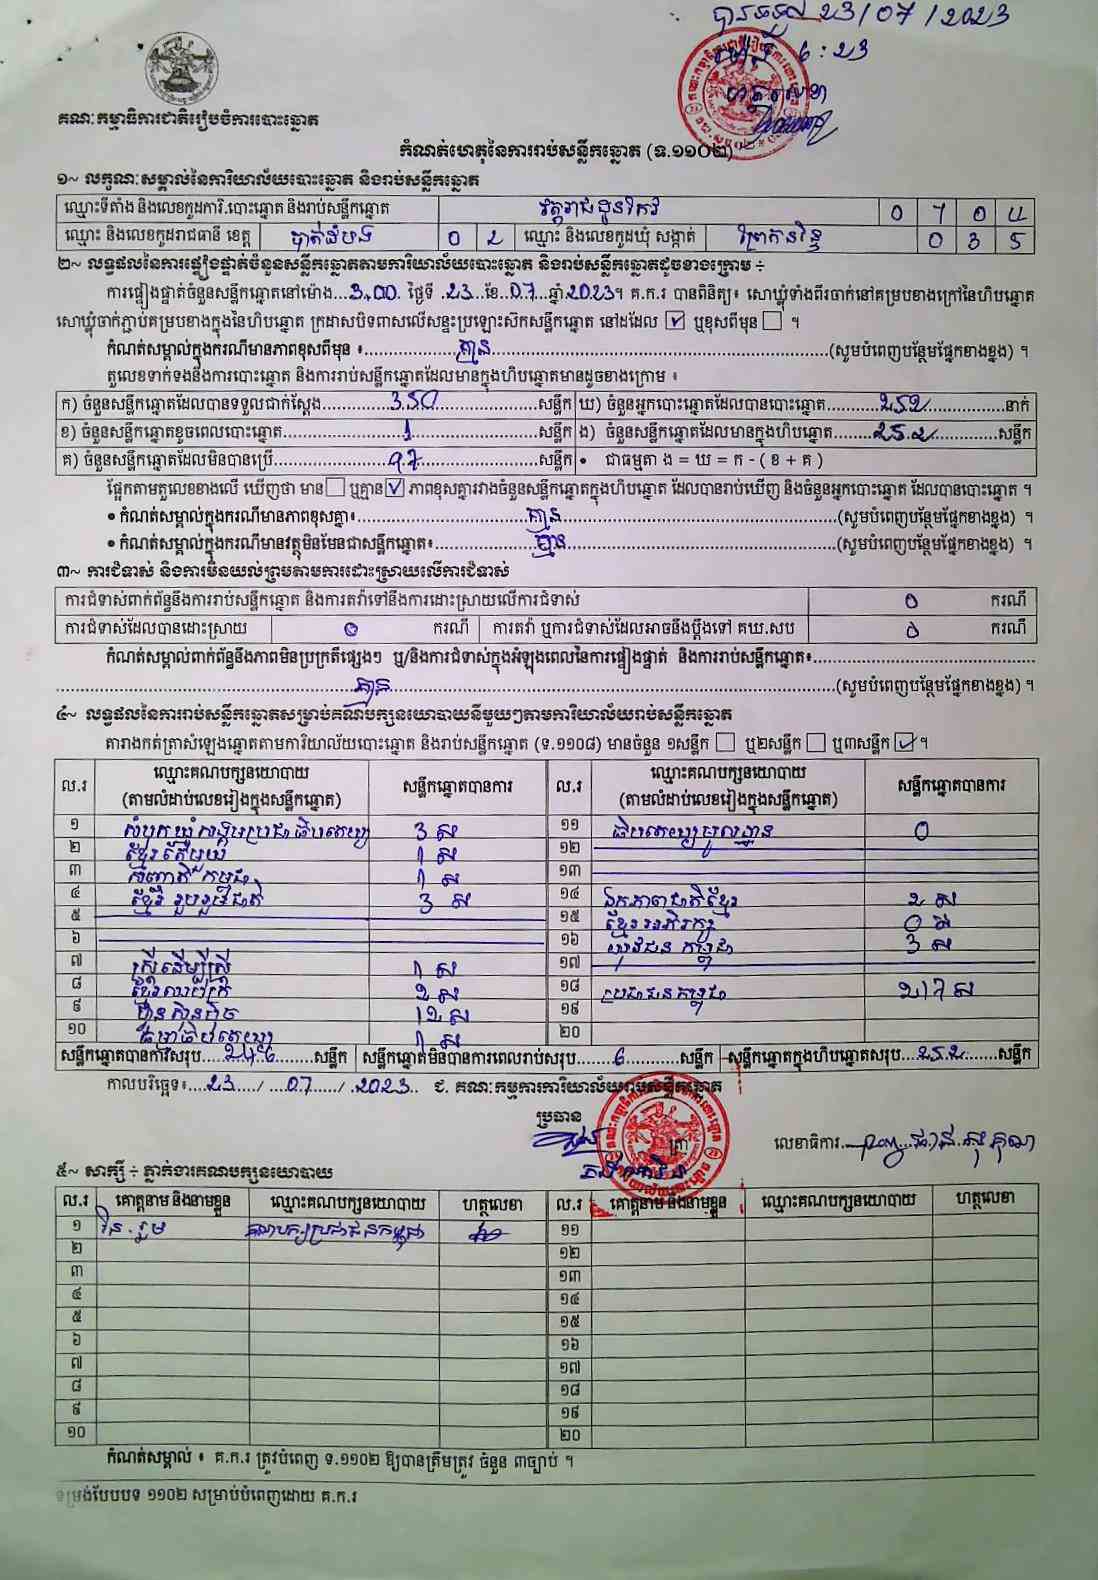 បានទទួល 23/07/2023
ម៉ោង 6:23
ហត្ថលេខា
គណៈកម្មាធិការជាតិរៀបចំការបោះឆ្នោត
កំណត់ហេតុនៃការរាប់សន្លឹកឆ្នោត (ទ.១១០២)
១~ លក្ខណៈសម្គាល់នៃការិយាល័យបោះឆ្នោត និងរាប់សន្លឹកឆ្នោត
ឈ្មោះទីតាំង និងលេខកូដការិ.បោះឆ្នោត និងរាប់សន្លឹកឆ្នោត វត្តរាជដូនកែវ 0 7 0 4
ឈ្មោះ និងលេខកូដរាជធានី ខេត្ត បាត់ដំបង 0 2 ឈ្មោះ និងលេខកូដឃុំ សង្កាត់ 0 3 5
២~ លទ្ធផលនៃការផ្ទៀងផ្ទាត់ចំនួនសន្លឹកឆ្នោតតាមការិយាល័យបោះឆ្នោត និងរាប់សន្លឹកឆ្នោតដូចខាងក្រោម ÷
ការផ្ទៀងផ្ទាត់ចំនួនសន្លឹកឆ្នោតនៅម៉ោង...3.00. ថ្ងៃទី .23. ខែ.07...ឆ្នាំ.2023។ គ.ក.រ បានពិនិត្យ៖ សោឃ្លុំទាំងពីរចាក់នៅគម្របខាងក្រៅនៃហិបឆ្នោត
សោឃ្លុំចាក់ភ្ជាប់គម្របខាងក្នុងនៃហិបឆ្នោត ក្រដាសបិទពាសលើសន្ទះប្រឡោះស៊កសន្លឹកឆ្នោត នៅដដែល ☑ ឬខុសពីមុន ☐ ។
កំណត់សម្គាល់ក្នុងករណីមានភាពខុសពីមុន ៖ គ្មាន (សូមបំពេញបន្ថែមផ្នែកខាងខ្នង) ។
តួលេខទាក់ទងនឹងការបោះឆ្នោត និងការរាប់សន្លឹកឆ្នោតដែលមានក្នុងហិបឆ្នោតមានដូចខាងក្រោម ៖
ក) ចំនួនសន្លឹកឆ្នោតដែលបានទទួលជាក់ស្តែង 350 សន្លឹក ឃ) ចំនួនអ្នកបោះឆ្នោតដែលបានបោះឆ្នោត 252 នាក់
ខ) ចំនួនសន្លឹកឆ្នោតខូចពេលបោះឆ្នោត 1 សន្លឹក ង) ចំនួនសន្លឹកឆ្នោតដែលមានក្នុងហិបឆ្នោត 252 សន្លឹក
គ) ចំនួនសន្លឹកឆ្នោតដែលមិនបានប្រើ 97 សន្លឹក • ជាធម្មតា ង = ឃ = ក - ( ខ + គ )
ផ្អែកតាមតួលេខខាងលើ ឃើញថា មាន ☐ ឬគ្មាន ☑ ភាពខុសគ្នារវាងចំនួនសន្លឹកឆ្នោតក្នុងហិបឆ្នោត ដែលបានរាប់ឃើញ និងចំនួនអ្នកបោះឆ្នោត ដែលបានបោះឆ្នោត ។
• កំណត់សម្គាល់ក្នុងករណីមានភាពខុសគ្នា៖ គ្មាន (សូមបំពេញបន្ថែមផ្នែកខាងខ្នង) ។
• កំណត់សម្គាល់ក្នុងករណីមានវត្ថុមិនមែនជាសន្លឹកឆ្នោត៖ គ្មាន (សូមបំពេញបន្ថែមផ្នែកខាងខ្នង) ។
៣~ ការជំទាស់ និងការមិនយល់ព្រមតាមការដោះស្រាយលើការជំទាស់
ការជំទាស់ពាក់ព័ន្ធនឹងការរាប់សន្លឹកឆ្នោត និងការតវ៉ាទៅនឹងការដោះស្រាយលើការជំទាស់ 0 ករណី
ការជំទាស់ដែលបានដោះស្រាយ 0 ករណី ការតវ៉ា ឬការជំទាស់ដែលអាចនឹងប្តឹងទៅ គឃ.សប 0 ករណី
កំណត់សម្គាល់ពាក់ព័ន្ធនឹងភាពមិនប្រក្រតីផ្សេងៗ ឬ/និងការជំទាស់ក្នុងអំឡុងពេលនៃការផ្ទៀងផ្ទាត់ និងការរាប់សន្លឹកឆ្នោត៖
គ្មាន (សូមបំពេញបន្ថែមផ្នែកខាងខ្នង) ។
៤~ លទ្ធផលនៃការរាប់សន្លឹកឆ្នោតសម្រាប់គណបក្សនយោបាយនីមួយៗតាមការិយាល័យរាប់សន្លឹកឆ្នោត
តារាងកត់ត្រាសំឡេងឆ្នោតតាមការិយាល័យបោះឆ្នោត និងរាប់សន្លឹកឆ្នោត (ទ.១១០៨) មានចំនួន ១សន្លឹក ☐ ឬ២សន្លឹក ☐ ឬ៣សន្លឹក ☑ ។
ល.រ ឈ្មោះគណបក្សនយោបាយ (តាមលំដាប់លេខរៀងក្នុងសន្លឹកឆ្នោត) សន្លឹកឆ្នោតបានការ ល.រ ឈ្មោះគណបក្សនយោបាយ (តាមលំដាប់លេខរៀងក្នុងសន្លឹកឆ្នោត) សន្លឹកឆ្នោតបានការ
១ សំបុកឃ្មុំសង្គមប្រជាធិបតេយ្យ 3 ស ១១ ធិបតេយ្យមូលដ្ឋាន 0
២ ខ្មែរតែមួយ 1 ស ១២
៣ កម្ពុជា 1 ស ១៣
៤ ខ្មែររួបរួមជាតិ 3 ស ១៤ ឯកភាពជាតិខ្មែរ 2 ស
៥ ១៥ ខ្មែរអភិរក្ស 0 ស
៦ ១៦ យុវជនកម្ពុជា 3 ស
៧ ស្ត្រីដើម្បីស្ត្រី 1 ស ១៧
៨ 2 ស ១៨ ប្រជាជនកម្ពុជា 217 ស
៩ ហ៊្វុនស៊ិនប៉ិច 12 ស ១៩
១០ ធម្មាធិបតេយ្យ 1 ស ២០
សន្លឹកឆ្នោតបានការសរុប 246 សន្លឹក សន្លឹកឆ្នោតមិនបានការពេលរាប់សរុប 6 សន្លឹក សន្លឹកឆ្នោតក្នុងហិបឆ្នោតសរុប 252 សន្លឹក
កាលបរិច្ឆេទ៖ 23 / 07 / 2023 ជ. គណៈកម្មការការិយាល័យរាប់សន្លឹកឆ្នោត
ប្រធាន
ត្រា លេខាធិការ
៥~ សាក្សី ÷ ភ្នាក់ងារគណបក្សនយោបាយ
ល.រ គោត្តនាម និងនាមខ្លួន ឈ្មោះគណបក្សនយោបាយ ហត្ថលេខា ល.រ គោត្តនាម និងនាមខ្លួន ឈ្មោះគណបក្សនយោបាយ ហត្ថលេខា
១ វ៉ន.រួម គណបក្សប្រជាជនកម្ពុជា ១១
២ ១២
៣ ១៣
៤ ១៤
៥ ១៥
៦ ១៦
៧ ១៧
៨ ១៨
៩ ១៩
១០ ២០
កំណត់សម្គាល់ ៖ គ.ក.រ ត្រូវបំពេញ ទ.១១០២ ឱ្យបានត្រឹមត្រូវ ចំនួន ៣ច្បាប់ ។
ទម្រង់បែបបទ ១១០២ សម្រាប់បំពេញដោយ គ.ក.រ